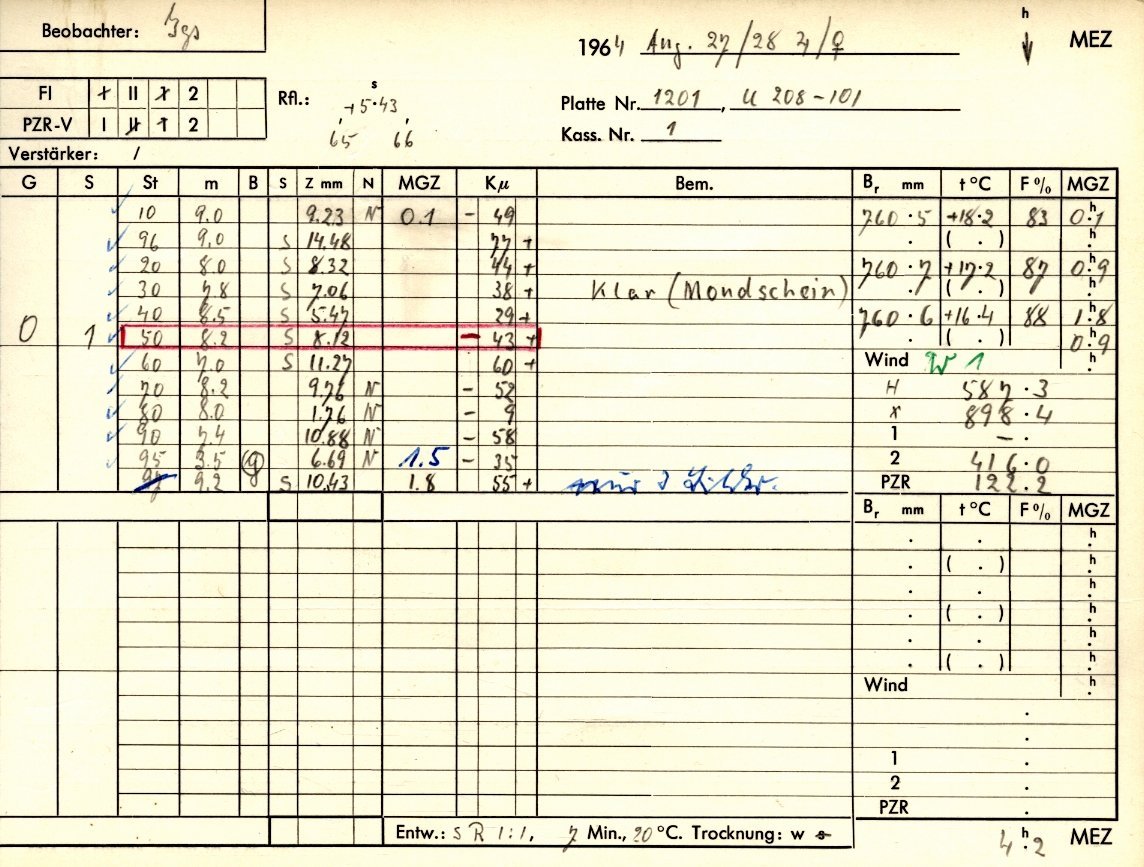 Beobachter: Igs
1964 Aug. 27/28 ♃/♀ h MEZ
FI I II 1 2
PZR-V I II 1 2
Rfl.: +5ˢ.43
65 66
Platte Nr. 1201, U 208-101
Kass. Nr. 1
Verstärker: /
G S St m B S Z mm N MGZ Kµ Bem. Bᵣ mm t°C F% MGZ
10 9.0 9.23 N 0.1 - 49 760.5 +18.2 83 0ʰ.1
96 9.0 S 14.48 77 + . ( . ) ʰ.
20 8.0 S 8.32 44 + 760.7 +17.2 87 0ʰ.9
30 7.8 S 7.06 38 + Klar (Mondschein) . ( . ) ʰ.
40 8.5 S 5.47 29 + 760.6 +16.4 88 1ʰ.8
0 1 50 8.2 S 8.12 - 43 + . ( . ) 0ʰ.9
60 7.0 S 11.27 60 + Wind W 1 ʰ.
70 8.2 9.76 N - 52 H 587.3
80 8.0 1.76 N - 9 x 898.4
90 7.4 10.88 N - 58 1 -.
95 3.5 (g) 6.69 N 1.5 - 35 2 416.0
9.2 S 10.43 1.8 55 + nur 3 Bilder. PZR 122.2
Bᵣ mm t°C F% MGZ
. . ʰ.
. ( . ) ʰ.
. . ʰ.
. ( . ) ʰ.
. . ʰ.
. ( . ) ʰ.
Wind ʰ.
.
.
1 .
2 .
PZR .
Entw.: S R 1:1, 7 Min., 20 °C. Trocknung: w s
4ʰ.2 MEZ